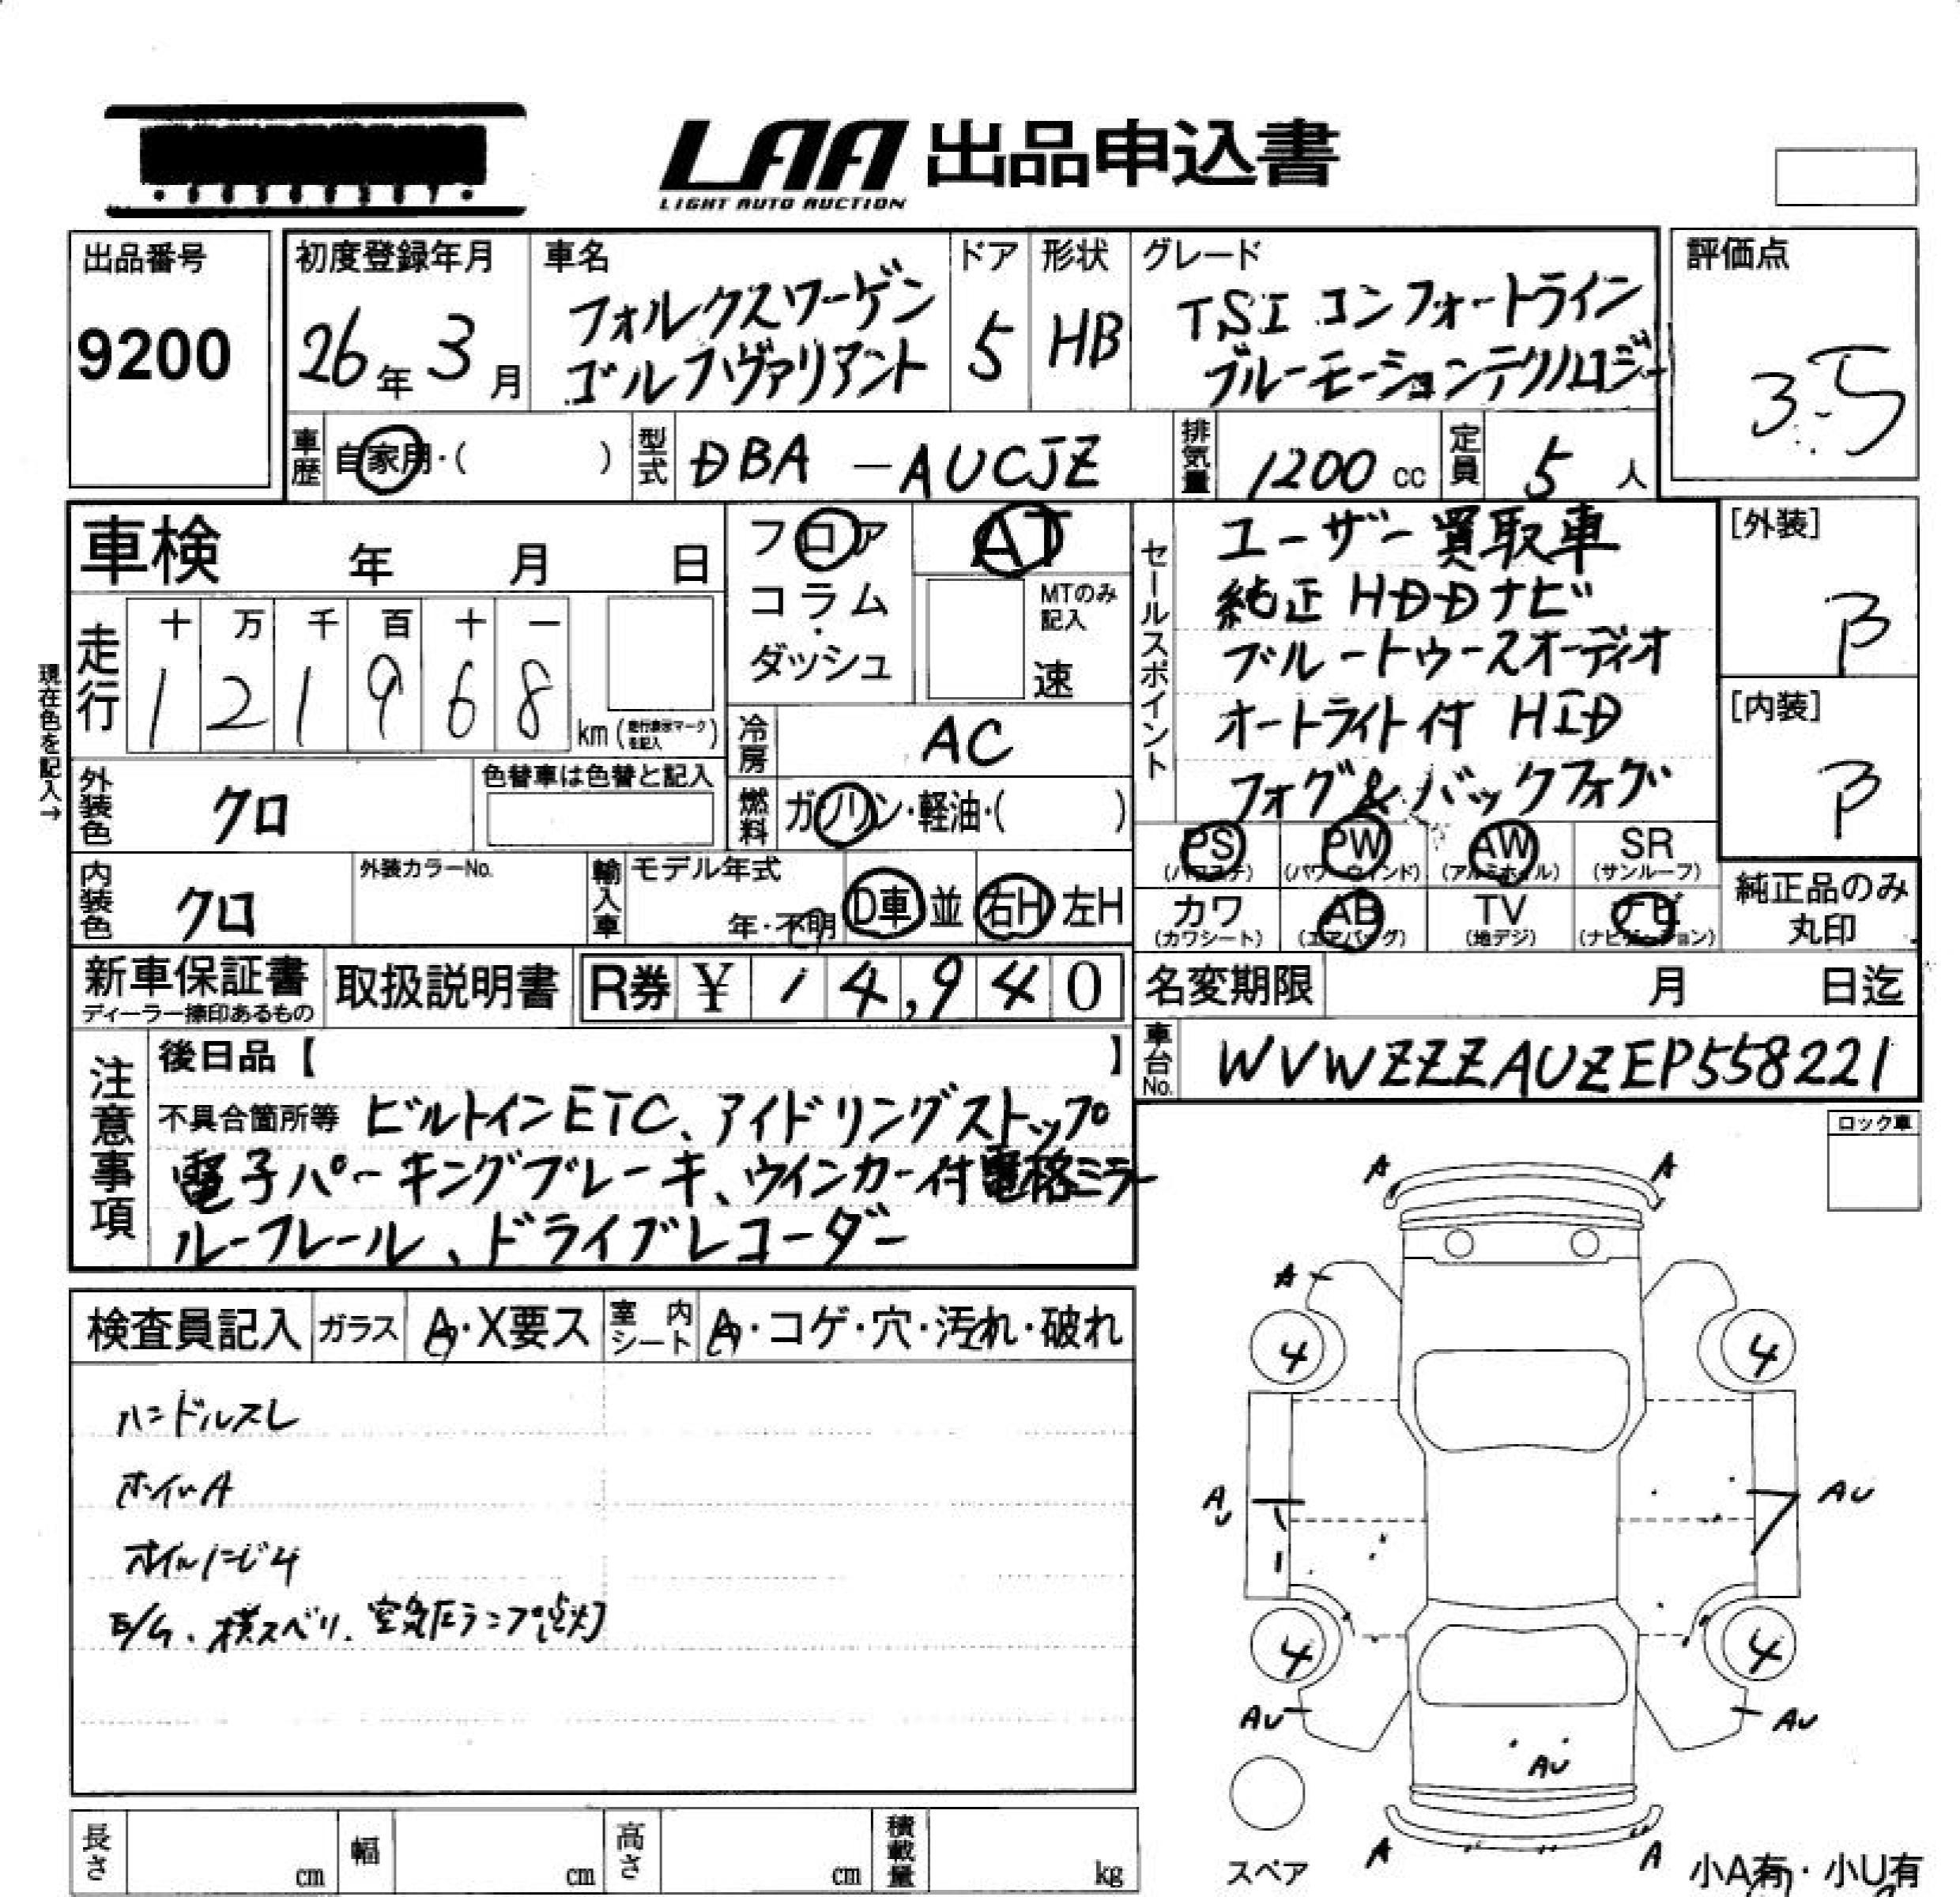 LAA 出品申込書
LIGHT AUTO AUCTION
出品番号
9200
初度登録年月
26年 3月
車名
フォルクスワーゲン
ゴルフヴァリアント
ドア
5
形状
HB
グレード
TSI コンフォートライン
ブルーモーションテクノロジー
評価点
3.5
車歴 自家用・( )
型式 DBA -AUCJZ
排気量 1200 cc
定員 5 人
車検 年 月 日
走行
十 万 千 百 十 一
1 2 1 9 6 8 km (走行表示マークを記入)
現在色を記入→
外装色 クロ
色替車は色替と記入
内装色 クロ
外装カラーNo.
フロア
コラム
・
ダッシュ
AT
MTのみ
記入
速
冷房 AC
燃料 ガソリン・軽油・( )
輸入車 モデル年式
年・不明
D車 並 右H 左H
セールスポイント
ユーザー買取車
純正 HDDナビ
ブルートゥースオーディオ
オートライト付 HID
フォグ&バックフォグ
[外装]
B
[内装]
B
PS (パワステ)
PW (パワーウインド)
AW (アルミホイル)
SR (サンルーフ)
カワ (カワシート)
AB (エアバッグ)
TV (地デジ)
ナビ (ナビゲーション)
純正品のみ
丸印
新車保証書
ディーラー捺印あるもの
取扱説明書
R券 ¥ 14,940
名変期限 月 日迄
車台No. WVWZZZAUZEP558221
注意事項
後日品【 】
不具合箇所等 ビルトインETC、アイドリングストップ
電子パーキングブレーキ、ウインカー付電格ミラー
ルーフレール、ドライブレコーダー
ロック車
検査員記入
ガラス A・X要ス
室内シート A・コゲ・穴・汚れ・破れ
ハンドルスレ
ホイルA
オイルにじみ
E/G、横スベリ、空気圧ランプ点灯
A A
A
4 4
AU AU
4 4
AU AU
AU
A A
スペア
小A有・小U有
長さ cm
幅 cm
高さ cm
積載量 kg